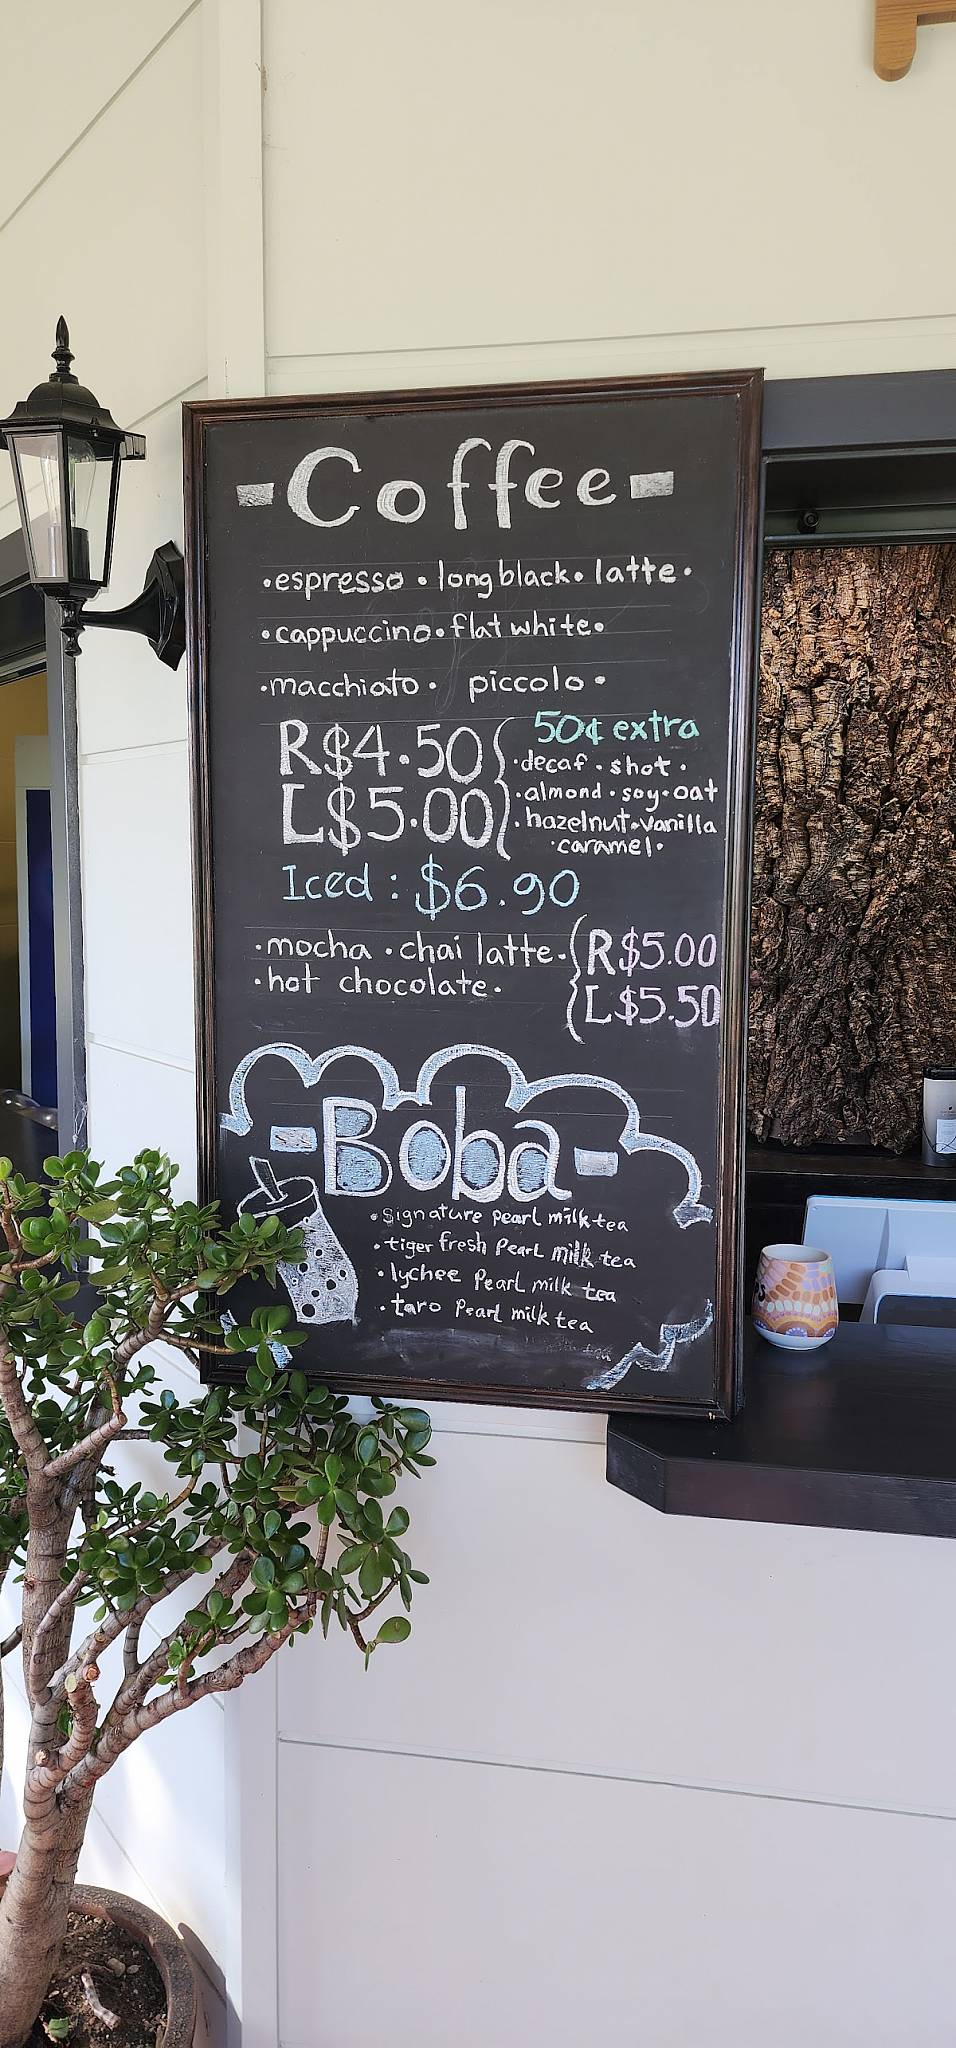 -Coffee-
•espresso • long black• latte•
•cappuccino•flat white•
•macchiato• piccolo •
R$4.50
L$5.00
50¢ extra
•decaf • shot •
•almond • soy•oat
•hazelnut•vanilla
•caramel•
Iced : $6.90
•mocha •chai latte•
•hot chocolate•
R$5.00
L$5.50
-Boba-
•signature pearl milk tea
•tiger fresh Pearl milk tea
•lychee Pearl milk tea
•taro Pearl milk tea